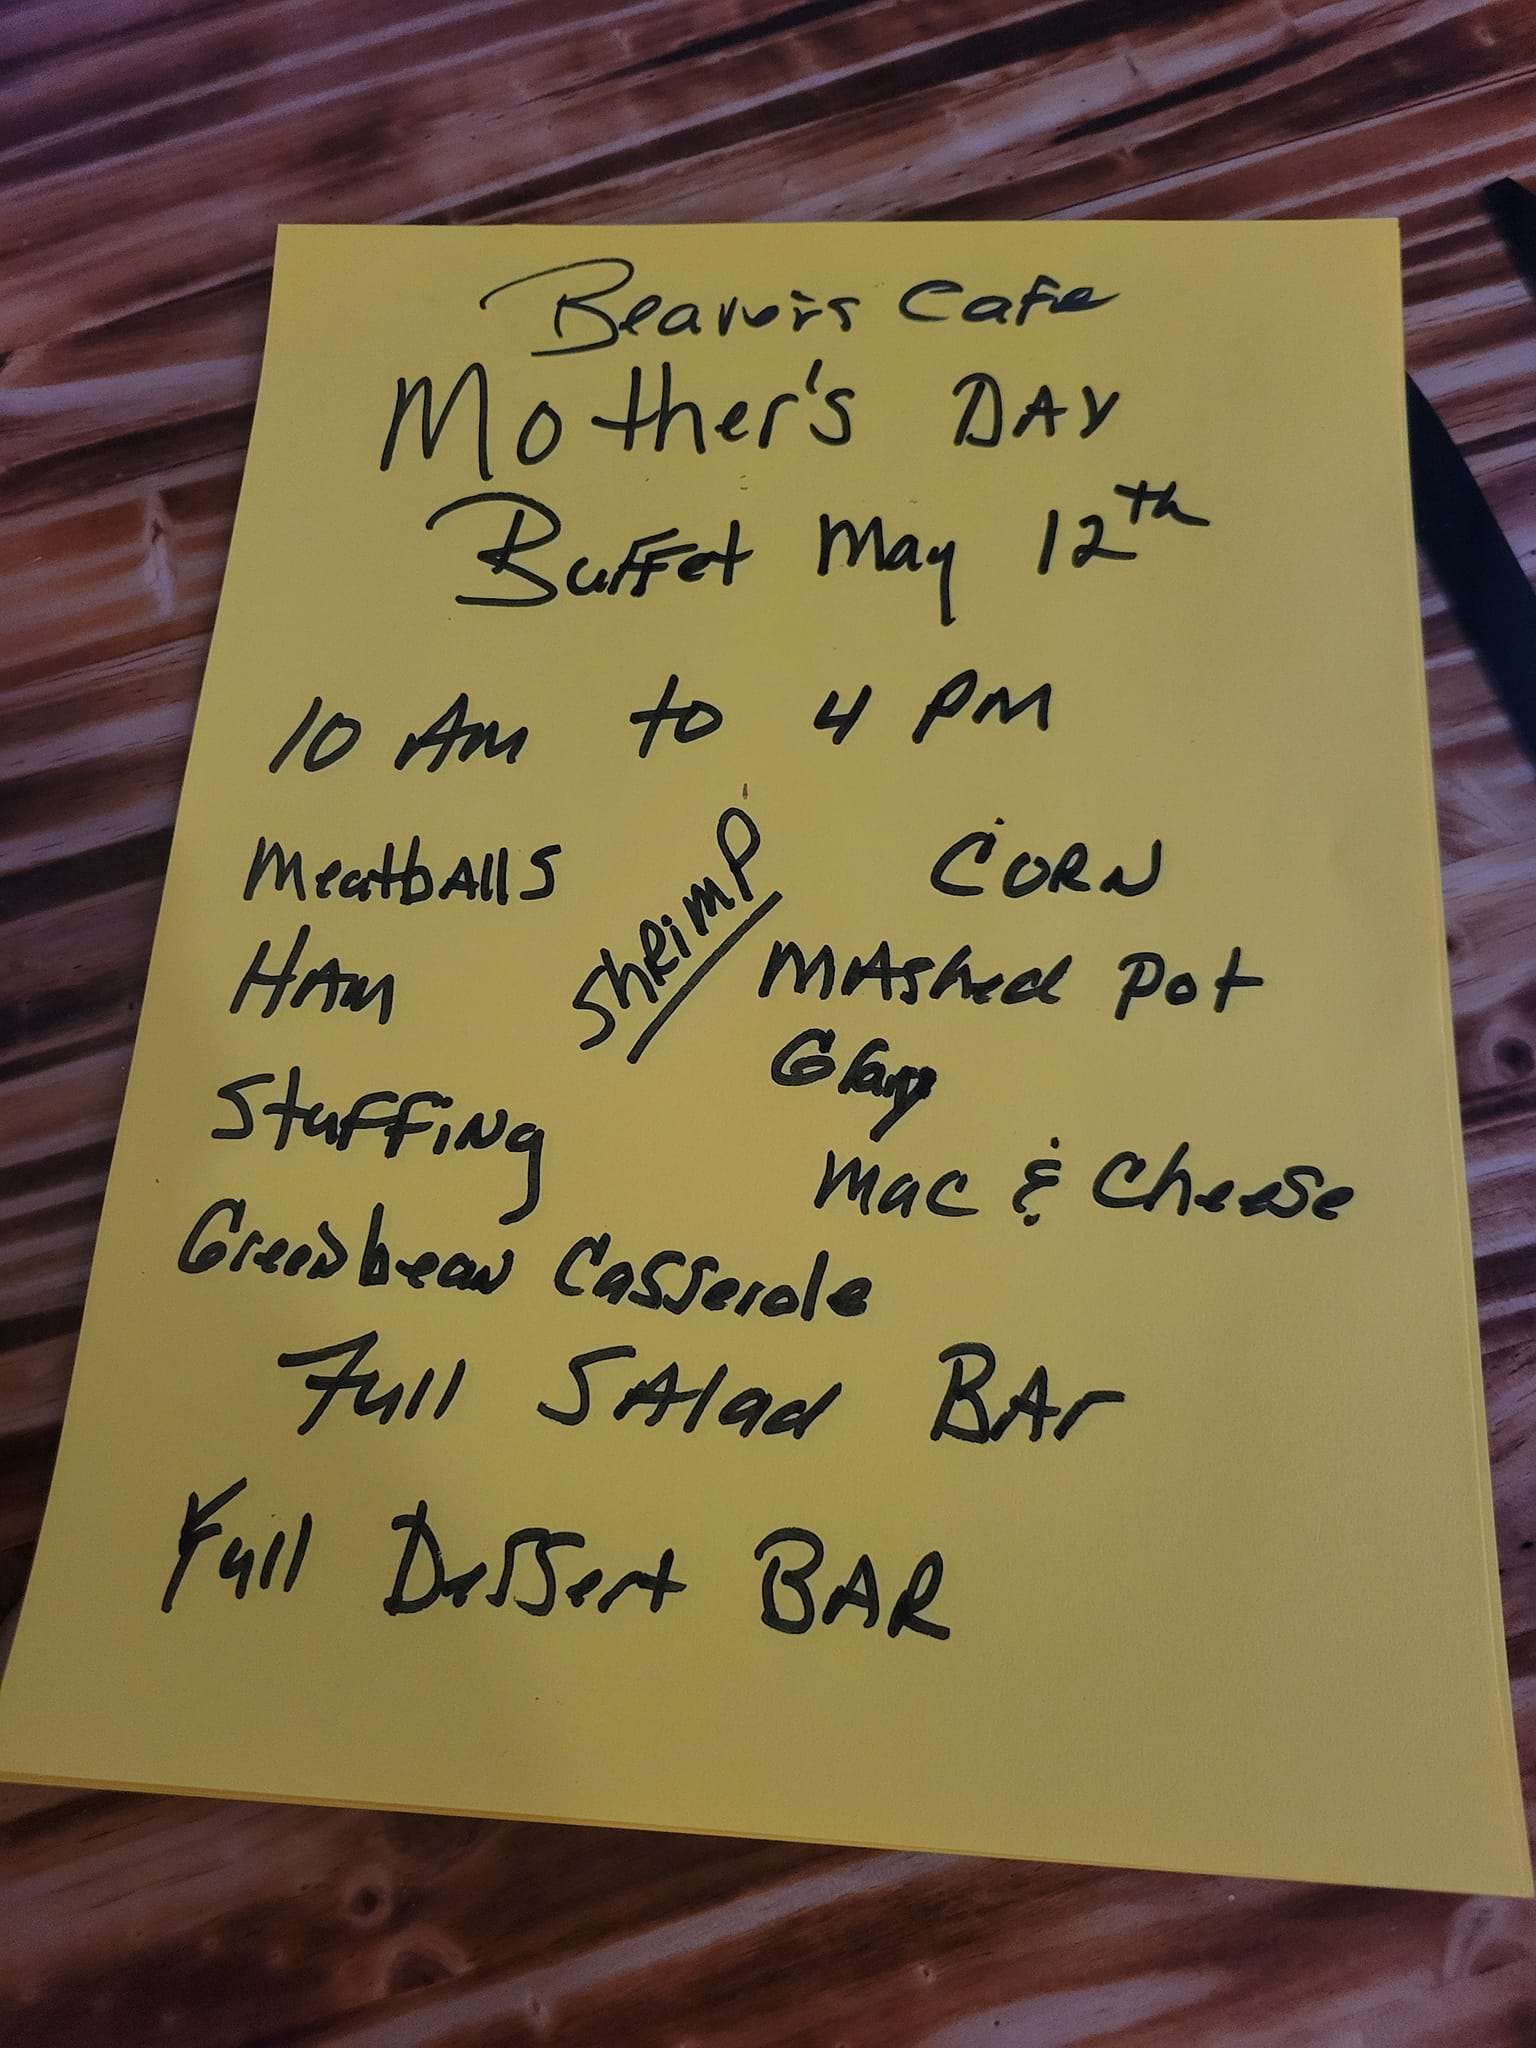 Beaver's Cafe
Mother's DAY
Buffet May 12th
10 Am to 4 PM
MeatbAlls
ShRimp
CORN
HAM
MAshed Pot
Gravy
StuffiNg
Mac & Cheese
GreeNbeaN Casserole
Full SAlad BAr
Full Dessert BAR